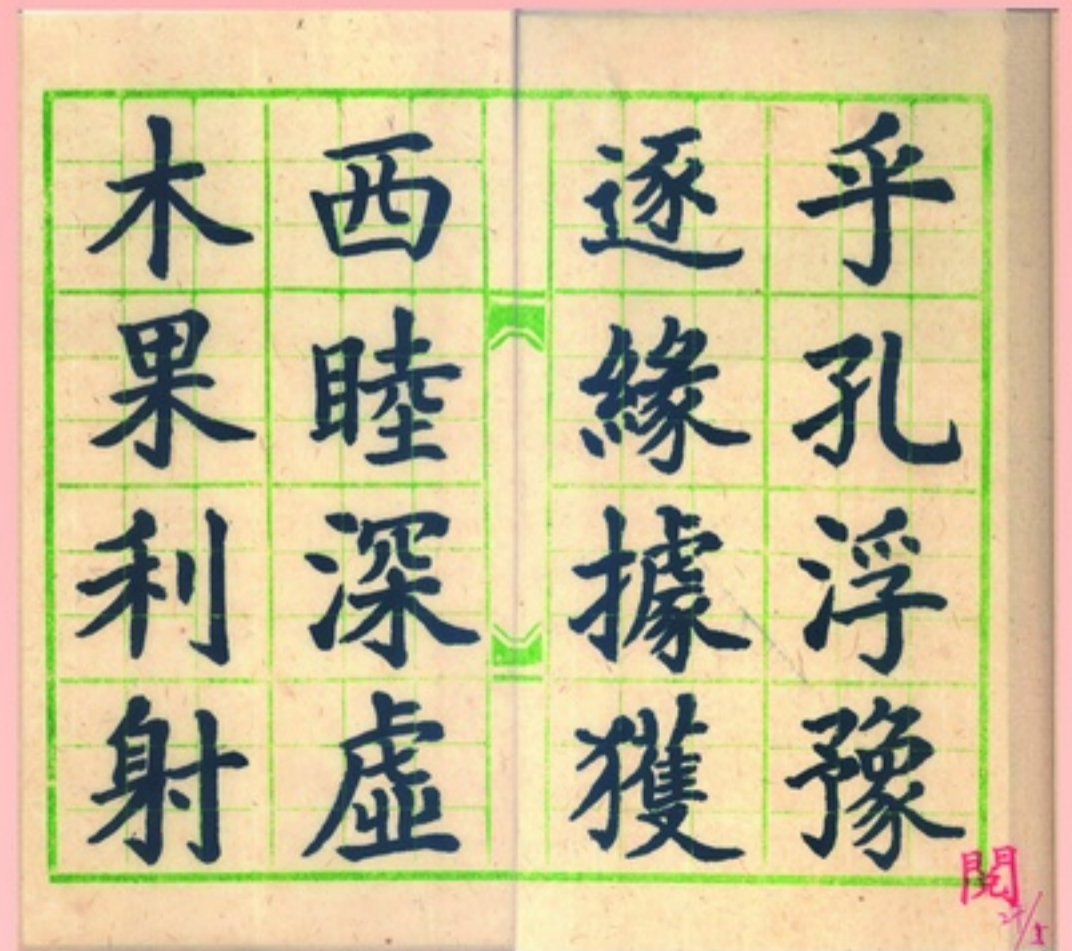 乎孔浮豫
逐緣據獲
西睦深虛
木果利射
閱